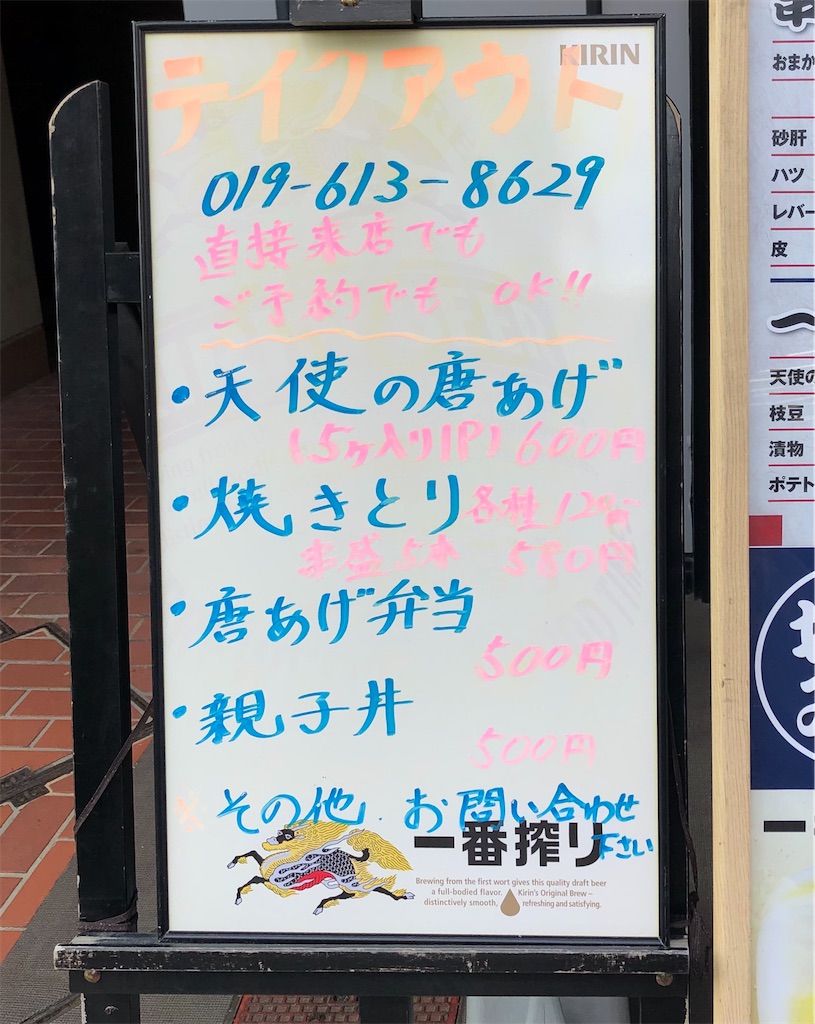 KIRIN
テイクアウト
019-613-8629
直接来店でも
ご予約でも OK!!
・天使の唐あげ
(5ヶ入り1P) 600円
・焼きとり各種120円
串盛5本 580円
・唐あげ弁当
500円
・親子丼
500円
※その他.お問い合わせ
下さい
一番搾り
Brewing from the first wort gives this quality draft beer
a full-bodied flavor. Kirin's Original Brew –
distinctively smooth, refreshing and satisfying.
おまか
砂肝
ハツ
レバー
皮
天使の
枝豆
漬物
ポテト